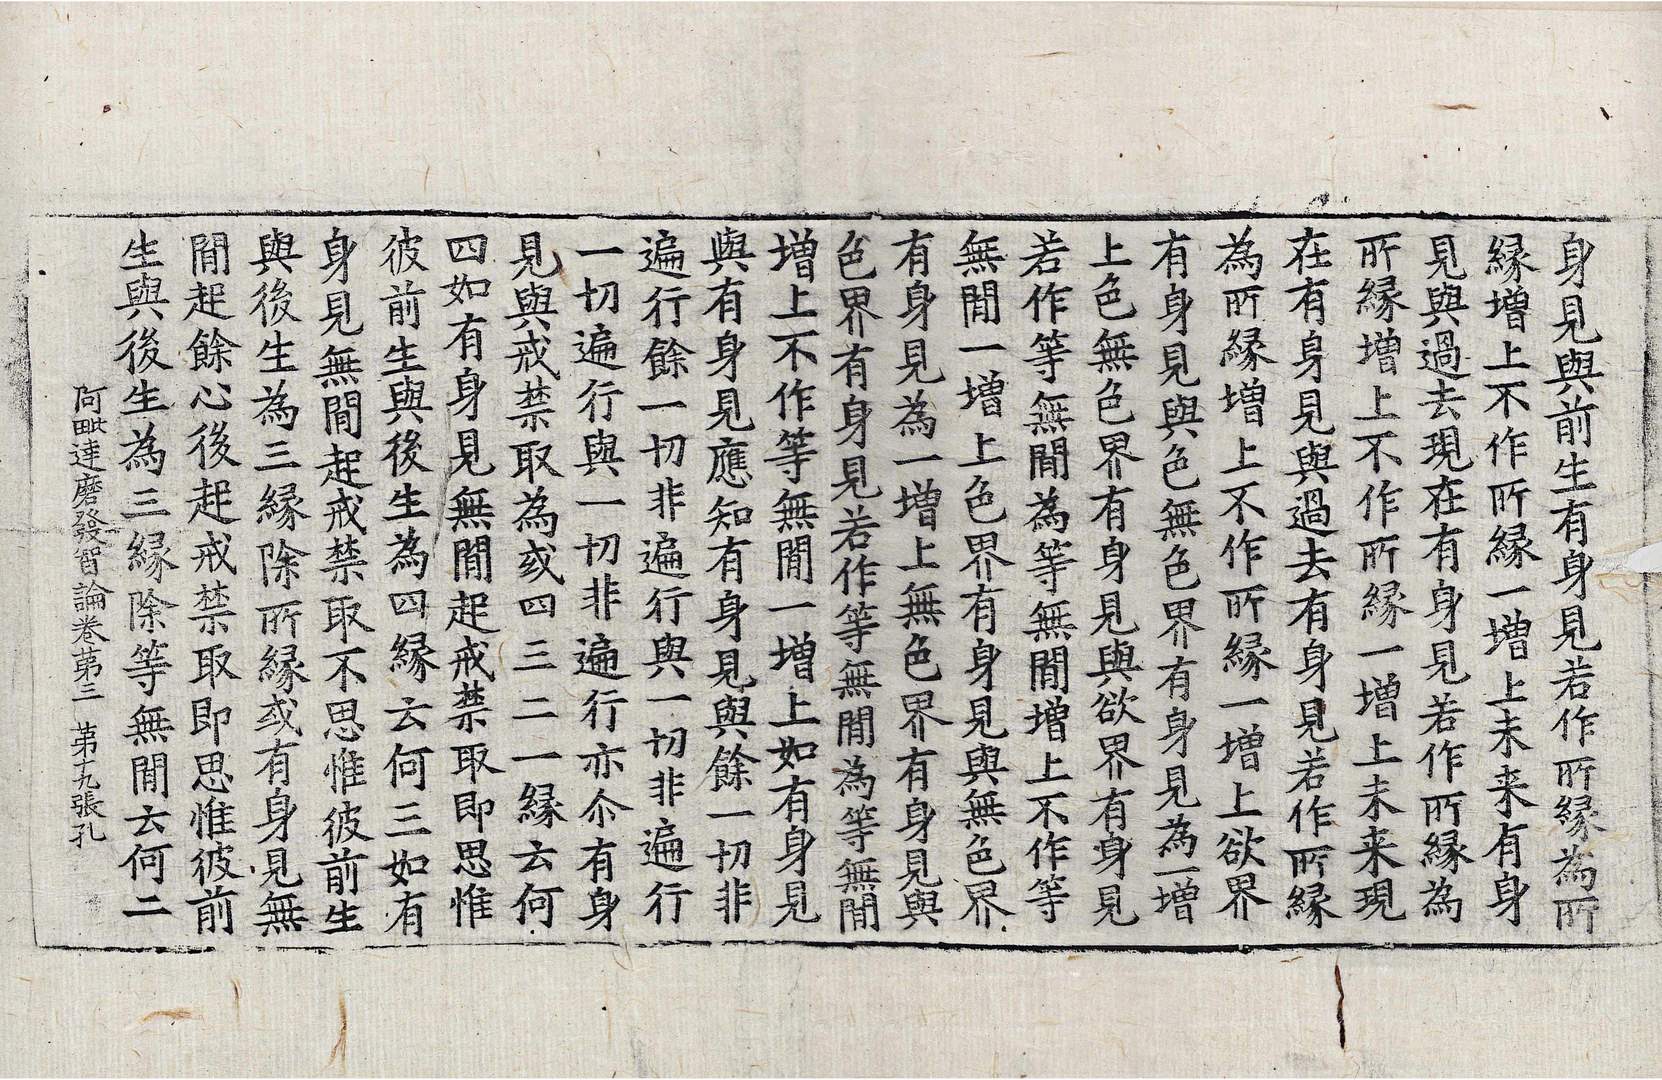 身見與前生有身見若作所縁為所
縁增上不作所縁一增上未来有身
見與過去現在有身見若作所縁為
所縁增上不作所縁一增上未来現
在有身見與過去有身見若作所縁
為所縁增上不作所縁一增上欲界
有身見與色無色界有身見為一增
上色無色界有身見與欲界有身見
若作等無閒為等無閒增上不作等
無閒一增上色界有身見與無色界
有身見為一增上無色界有身見與
色界有身見若作等無閒為等無閒
增上不作等無閒一增上如有身見
與有身見應知有身見與餘一切非
遍行餘一切非遍行與一切非遍行
一切遍行與一切非遍行亦尒有身
見與戒禁取為或四三二一縁云何
四如有身見無閒起戒禁取即思惟
彼前生與後生為四縁云何三如有
身見無閒起戒禁取不思惟彼前生
與後生為三縁除所縁或有身見無
閒起餘心後起戒禁取即思惟彼前
生與後生為三縁除等無閒云何二
阿毗達磨發智論卷苐三 苐十九張孔